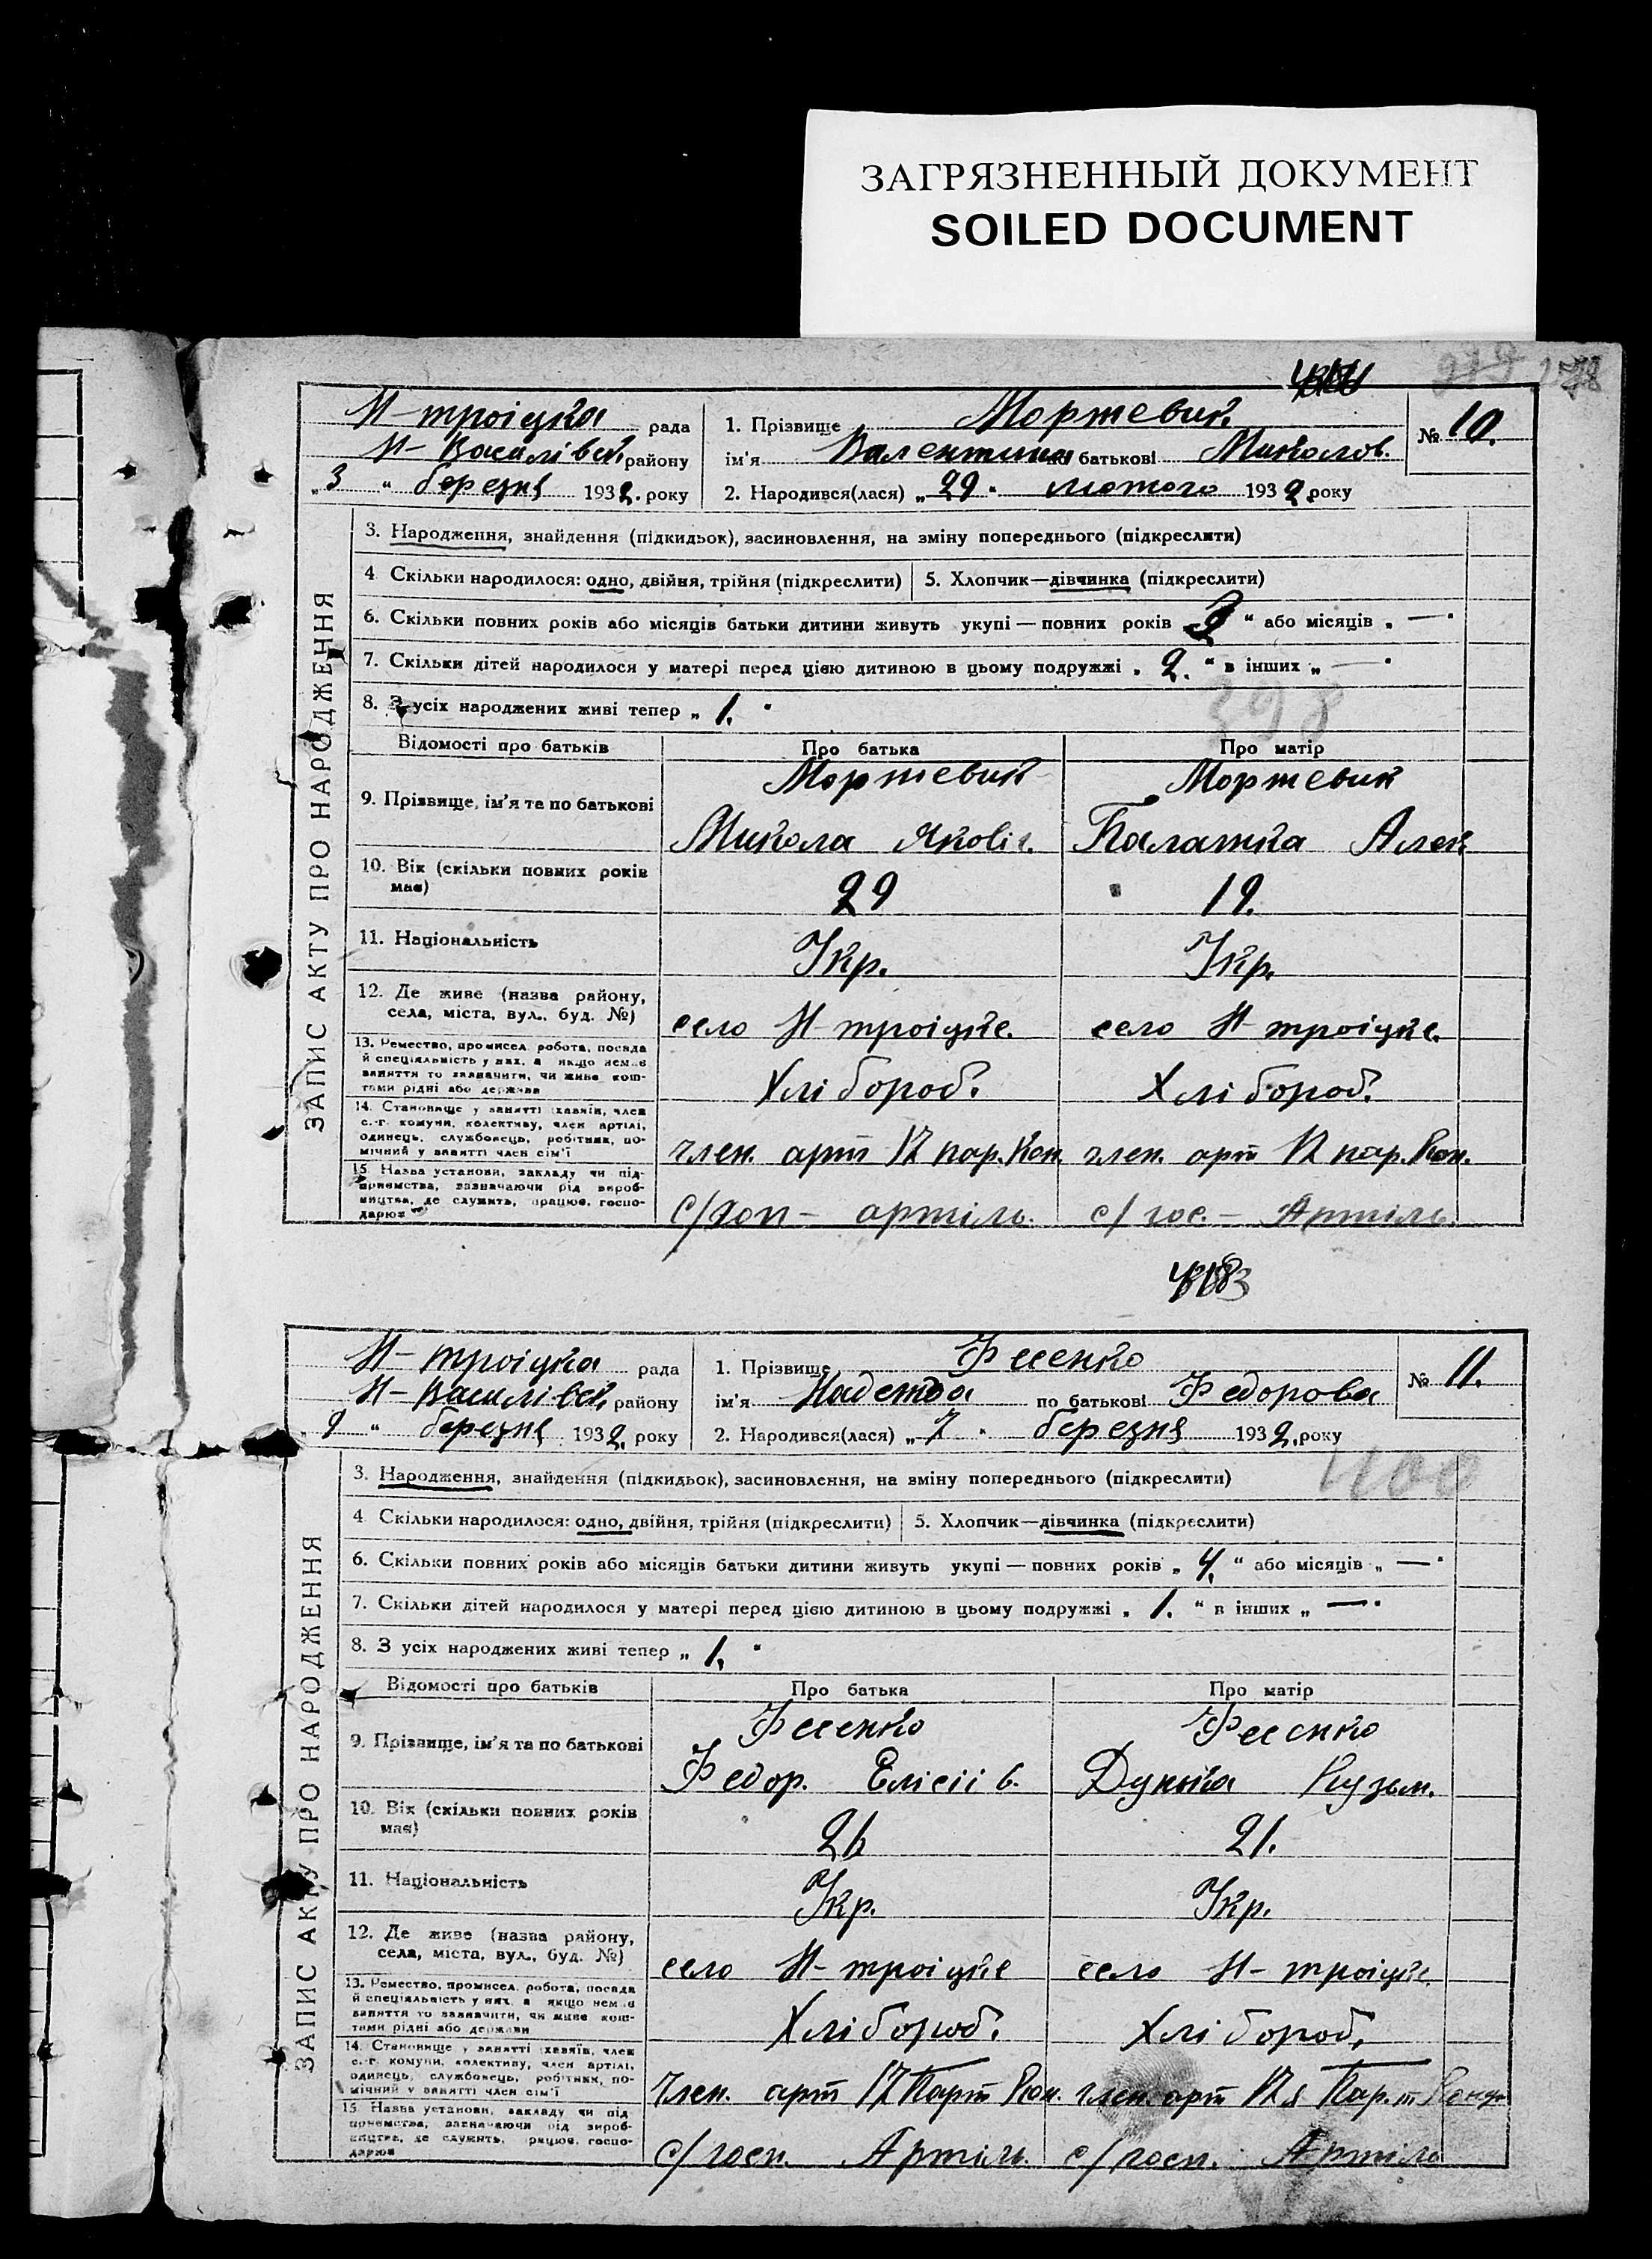 ЗАГРЯЗНЕННЫЙ ДОКУМЕНТ
SOILED DOCUMENT
Н-троіцка рада
Н-Василівськ району
„3 “ березня 1932. року
1. Прізвище Моржевик
ім'я Валентина по батькові Миколов.
2. Народився(лася) „29. лютого 1932. року
№ 10.
ЗАПИС АКТУ ПРО НАРОДЖЕННЯ
3. Народження, знайдення (підкидьок), засиновлення, на зміну попереднього (підкреслити)
4 Скільки народилося: одно, двійня, трійня (підкреслити) 5. Хлопчик—дівчинка (підкреслити)
6. Скільки повних років або місяців батьки дитини живуть укупі — повних років 3 “ або місяців „ — “
7. Скільки дітей народилося у матері перед цією дитиною в цьому подружжі „ 2. “ в інших „ — “
398
8. З усіх народжених живі тепер „ 1. “
Відомості про батьків Про батька Про матір
9. Прізвище, ім'я та по батькові
Моржевик Моржевик
Микола Яковіч. Палажка Алек
10. Вік (скільки повних років має) 29 19.
11. Національність Укр. Укр.
12. Де живе (назва району, села, міста, вул., буд. №) село Н-троіцке. село Н-троіцке.
13. Ремество, промисел, робота, посада й спеціяльність у них, а якщо немає заняття то зазначити, чи живе коштами рідні або держави
Хлібороб. Хлібороб.
14. Становище у занятті хазяїн, член с.-г. комуни, колективу, член артілі, одинець, службовець, робітник, помічний у занятті член сім'ї
член. арт 17 пар. Кон. член. арт 17 пар. Кон.
15 Назва установи, закладу чи підприємства, зазначаючи рід виробництва, де служить, працює, господарює
с/гоп- артіль. с/гос.- Артіль.
Н-троіцка рада
Н-Василівськ, району
9 “ березня 1932. року
1. Прізвище Фесенко
ім'я Надежда по батькові Федорова
2. Народився(лася) „7 “ березня 1932. року
№ 11.
400
ЗАПИС АКТУ ПРО НАРОДЖЕННЯ
3. Народження, знайдення (підкидьок), засиновлення, на зміну попереднього (підкреслити)
4 Скільки народилося: одно, двійня, трійня (підкреслити) 5. Хлопчик—дівчинка (підкреслити)
6. Скільки повних років або місяців батьки дитини живуть укупі — повних років „ 4. “ або місяців „ — “
7. Скільки дітей народилося у матері перед цією дитиною в цьому подружжі „ 1. “ в інших „ — “
8. З усіх народжених живі тепер „ 1. “
Відомості про батьків Про батька Про матір
9. Прізвище, ім'я та по батькові
Фесенко Фесенко
Федор. Елісіів. Дунька Кузьм.
10. Вік (скільки повних років має) 26 21.
11. Національність Укр. Укр.
12. Де живе (назва району, села, міста, вул., буд. №) село Н-троіцке село Н-троіцке.
13. Ремество, промисел, робота, посада й спеціяльність у них, а якщо немає заняття то зазначити, чи живе коштами рідні або держави
Хлібороб. Хлібороб.
14. Становище у занятті хазяїн, член с.-г. комуни, колективу, член артілі, одинець, службовець, робітник, помічний у занятті член сім'ї
член. арт 17 Парт Кон. член. арт 17я Пар.т Конф
15 Назва установи, закладу чи підприємства, зазначаючи рід виробництва, де служить, працює, господарює
с/госп. Артіль. с/госп. Артіль